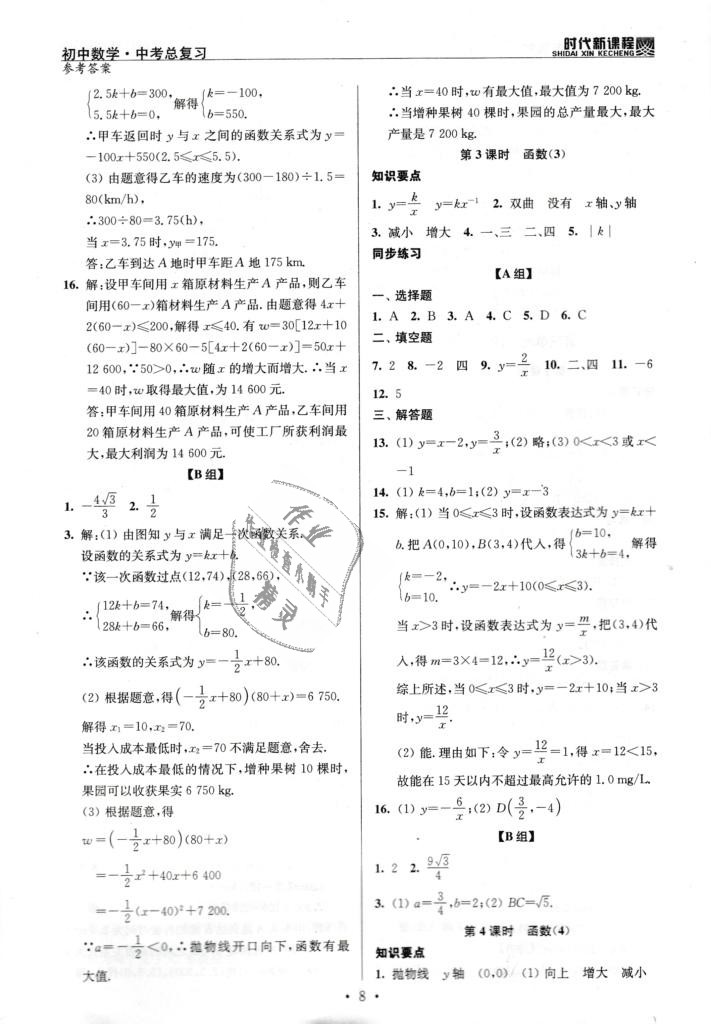 初中数学·中考总复习
参考答案
时代新课程
SHIDAI XIN KECHENG
{2.5k+b=300, 5.5k+b=0, 解得{k=-100, b=550.
∴甲车返回时 y 与 x 之间的函数关系式为 y=
-100x+550(2.5≤x≤5.5).
(3) 由题意得乙车的速度为(300-180)÷1.5=
80(km/h),
∴300÷80=3.75(h),
当 x=3.75 时,y甲=175.
答:乙车到达 A 地时甲车距 A 地 175 km.
16. 解:设甲车间用 x 箱原材料生产 A 产品,则乙车
间用(60-x)箱材料生产 A 产品.由题意得 4x+
2(60-x)≤200,解得 x≤40.有 w=30[12x+10
(60-x)]-80×60-5[4x+2(60-x)]=50x+
12 600,∵50>0,∴w 随 x 的增大而增大.∴当 x
=40 时,w 取得最大值,为 14 600 元.
答:甲车间用 40 箱原材料生产 A 产品,乙车间用
20 箱原材料生产 A 产品,可使工厂所获利润最
大,最大利润为 14 600 元.
【B 组】
1. -4√3/3 2. 1/2
3. 解:(1) 由图知 y 与 x 满足一次函数关系.
设函数的关系式为 y=kx+b.
∵该一次函数过点(12,74),(28,66),
∴{12k+b=74, 28k+b=66, 解得{k=-1/2, b=80.
∴该函数的关系式为 y=-1/2x+80.
(2) 根据题意,得(-1/2x+80)(80+x)=6 750.
解得 x₁=10,x₂=70.
当投入成本最低时,x₂=70 不满足题意,舍去.
∴在投入成本最低的情况下,增种果树 10 棵时,
果园可以收获果实 6 750 kg.
(3) 根据题意,得
w=(-1/2x+80)(80+x)
=-1/2x²+40x+6 400
=-1/2(x-40)²+7 200.
∵a=-1/2<0,∴抛物线开口向下,函数有最
大值.
∴当 x=40 时,w 有最大值,最大值为 7 200 kg.
∴当增种果树 40 棵时,果园的总产量最大,最大
产量是 7 200 kg.
第 3 课时 函数(3)
知识要点
1. y=k/x y=kx⁻¹ 2. 双曲 没有 x 轴、y 轴
3. 减小 增大 4. 一、三 二、四 5. |k|
同步练习
【A 组】
一、选择题
1. A 2. B 3. A 4. C 5. D 6. C
二、填空题
7. 2 8. -2 四 9. y=2/x 10. 二、四 11. -6
12. 5
三、解答题
13. (1) y=x-2,y=3/x;(2) 略;(3) 0<x<3 或 x<
-1
14. (1) k=4,b=1;(2) y=x-3
15. 解:(1) 当 0≤x≤3 时,设函数表达式为 y=kx+
b.把 A(0,10),B(3,4)代入,得{b=10, 3k+b=4, 解得
{k=-2, b=10. ∴y=-2x+10(0≤x≤3).
当 x>3 时,设函数表达式为 y=m/x,把(3,4)代
入,得 m=3×4=12,∴y=12/x(x>3).
综上所述,当 0≤x≤3 时,y=-2x+10;当 x>3
时,y=12/x.
(2) 能.理由如下:令 y=12/x=1,得 x=12<15,
故能在 15 天以内不超过最高允许的 1.0 mg/L.
16. (1) y=-6/x;(2) D(3/2,-4)
【B 组】
1. 2 2. 9√3/4
3. (1) a=3/4,b=2;(2) BC=√5.
第 4 课时 函数(4)
知识要点
1. 抛物线 y 轴 (0,0) (1) 向上 增大 减小
· 8 ·
作业
作业检查小助手
精灵